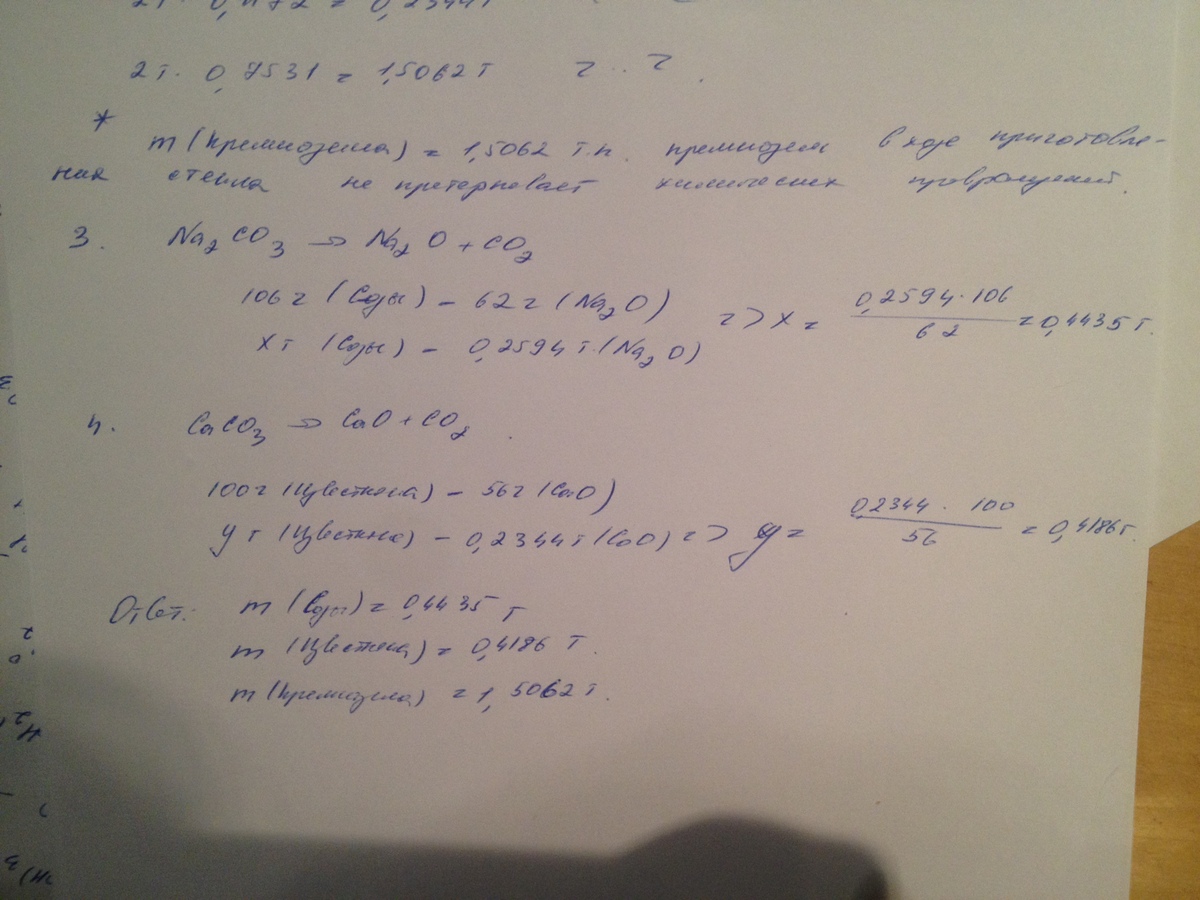 2т · 0,1172 = 0,2344т
2т · 0,7531 = 1,5062т
*
m (Кремнозема) = 1,5062 т.п. кремнозем в ходе приготовле-
ния стекла не претерпевает химических превращений.
3. Na2CO3 → Na2O + CO2
106г (Соды) – 62г (Na2O) => x = 0,2594·106 / 62 = 0,4435т.
xт (Соды) – 0,2594т. (Na2O)
4. CaCO3 → CaO + CO2.
100г (Цвестняка) – 56г (CaO)
yт (Цвестняка) – 0,2344т (CaO) => y = 0,2344 · 100 / 56 = 0,4186т.
Ответ: m (Соды) = 0,4435 т
m (Цвестняка) = 0,4186 т.
m (Кремнзема) = 1,5062т.